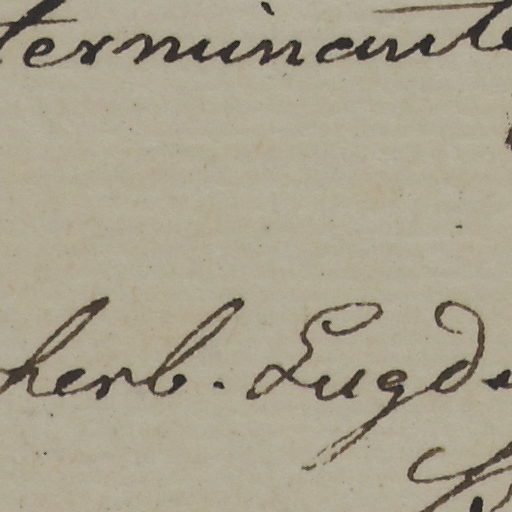 terminante
herb. Lugd